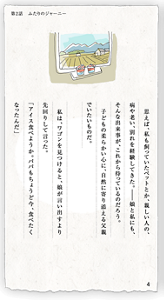 第2話 ふたりのジャーニー
思えば、私も飼っていたペットとか、親しい人の、
病や老い、別れを経験してきた。――娘と私にも、
そんな出来事が、これから待っているのだろう。
子どもの柔らかい心に、自然に寄り添える父親
でいたいものだ。
私は、ワゴンを見つけると、娘が言い出すより
先回りして言った。
「アイス食べようか。パパもちょうど今、食べたく
なったんだ」
4